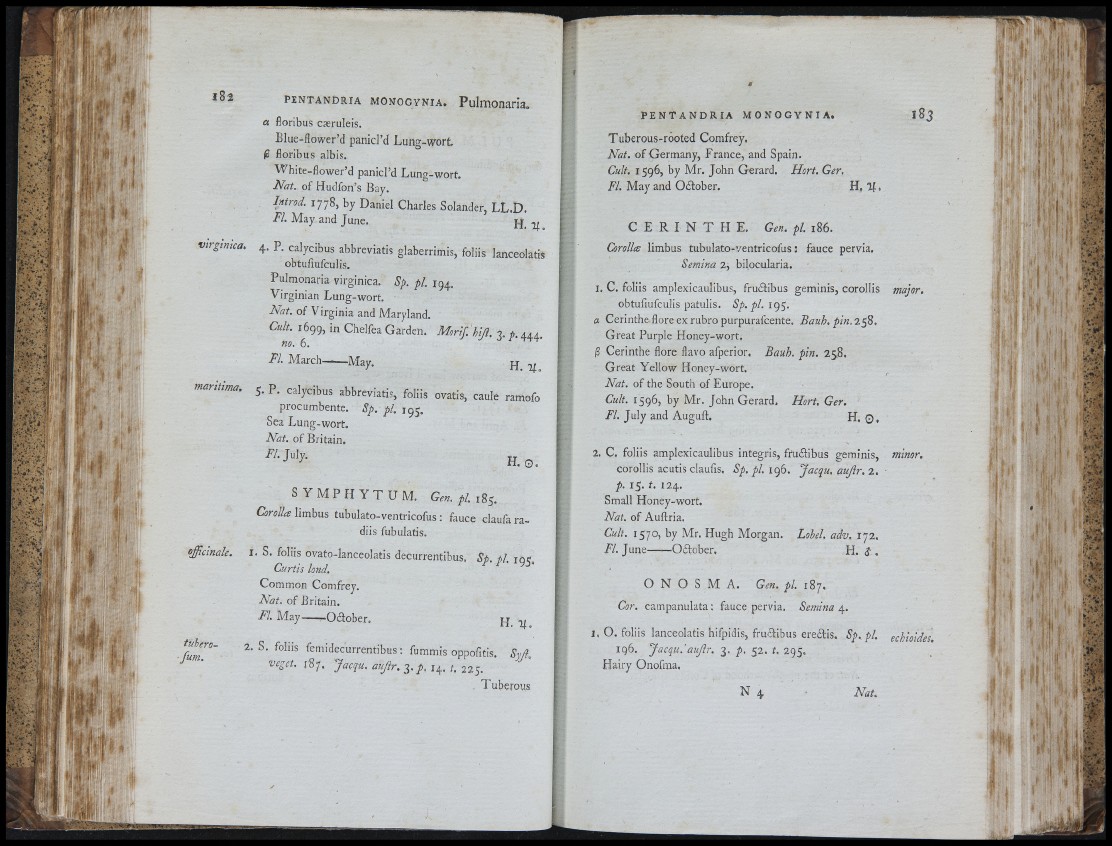 182 PENTANDRIA MONOGYNIA. Pulmonaria.
α floribus cæruleis.
Blue-flower'd panicl'd Lung-wort.
β floribus albis.
White-flower'd panicl'd Lung-wort.
Nat. of Hudſon's Bay.
Introd. 1778, by Daniel Charles Solander, LL.D.
Fl. May and June. H. ♃.
virginica. 4. P. calycibus abbreviatis glaberrimis, foliis lanceolatis
obtuſiuſculis.
Pulmonaria virginica. Sp. pl. 194.
Virginian Lung-wort.
Nat. of Virginia and Maryland.
Cult. 1699, in Chelſea Garden. Moriſ. hiſt. 3. p. 444.
no. 6.
Fl. March——May. H. ♃.
maritima. 5. P. calycibus abbreviatis, foliis ovatis, caule ramoſo
procumbente. Sp. pl. 195.
Sea Lung-wort.
Nat. of Britain.
Fl. July. H. ☉.
SYMPHYTUM. Gen. pl. 185.
Corollæ limbus tubulato-ventricoſus: fauce clauſa ra-
diis ſubulatis.
officinale. 1. S. foliis ovato-lanceolatis decurrentibus. Sp. pl. 195.
Curtis lond.
Common Comfrey.
Nat. of Britain.
Fl. May——October. H. ♃.
tubero-
ſum. 2. S. foliis ſemidecurrentibus: ſummis oppoſitis. Syſt.
veget. 187. Jacqu. auſtr. 3. p. 14. t. 225.
Tuberous
PENTANDRIA MONOGYNIA. 183
Tuberous-rooted Comfrey.
Nat. of Germany, France, and Spain.
Cult. 1596, by Mr. John Gerard. Hort. Ger.
Fl. May and October. H. ♃.
CERINTHE. Gen. pl. 186.
Corollæ limbus tubulato-ventricoſus: fauce pervia.
Semina 2, bilocularia.
1. C. foliis amplexicaulibus, fructibus geminis, corollis major.
obtuſiuſculis patulis. Sp. pl. 195.
α Cerinthe flore ex rubro purpuraſcente. Bauh. pin. 258.
Great Purple Honey-wort.
β Cerinthe flore flavo aſperior. Bauh. pin. 258.
Great Yellow Honey-wort.
Nat. of the South of Europe.
Cult. 1596, by Mr. John Gerard. Hort. Ger.
Fl. July and Auguſt. H. ☉.
2. C. foliis amplexicaulibus integris, fructibus geminis, minor.
corollis acutis clauſis. Sp. pl. 196. Jacqu. auſtr. 2.
p. 15. t. 124.
Small Honey-wort.
Nat. of Auſtria.
Cult. 1570, by Mr. Hugh Morgan. Lobel. adv. 172.
Fl. June——October. H. ♂.
ONOSMA. Gen. pl. 187.
Cor. campanulata: fauce pervia. Semina 4.
1. O. foliis lanceolatis hiſpidis, fructibus erectis. Sp. pl. echioides.
196. Jacqu. auſtr. 3. p. 52. t. 295.
Hairy Onoſma.
N 4 Nat.